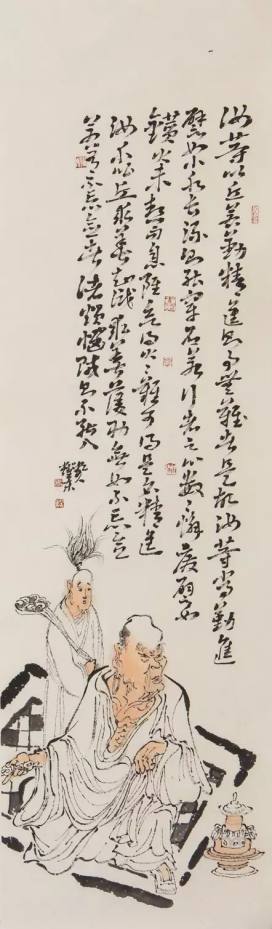 汝等比丘若勤精進則事無難者是故汝等當勤進
譬如小水長流則能穿石若行者之心數々懈廢譬如
鑽火未熱而息雖欲得火々難可得是名精進
汝等比丘求善知識求善護助無如不忘念
若有不忘念者諸煩惱賊則不能入